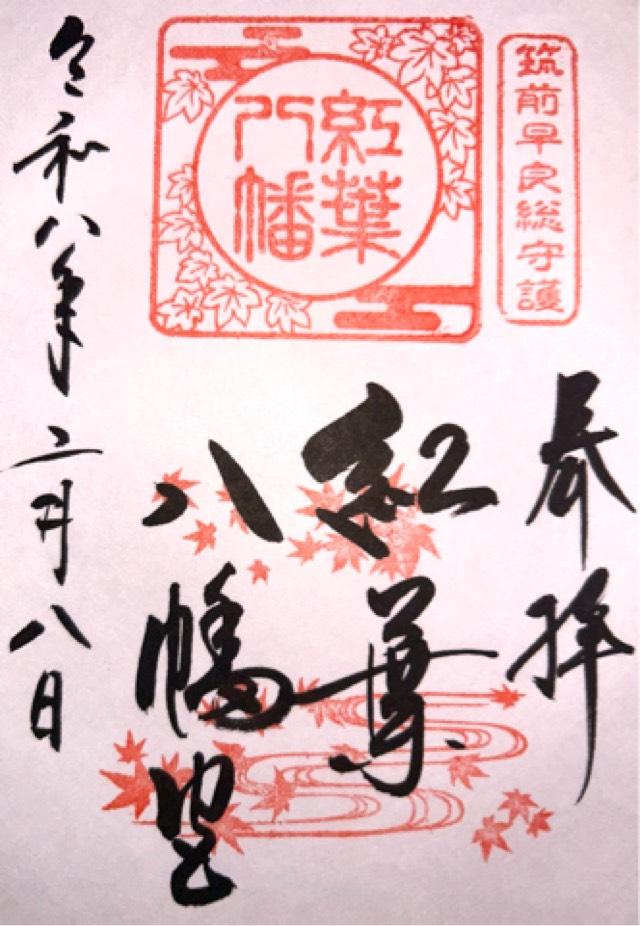 筑前早良総守護
紅葉
八幡
奉拝
紅葉
八幡宮
令和八年二月八日